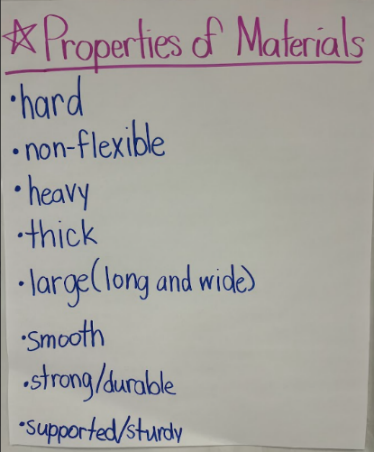 ☆Properties of Materials
•hard
•non-flexible
•heavy
•thick
•large(long and wide)
•smooth
•strong/durable
•supported/sturdy